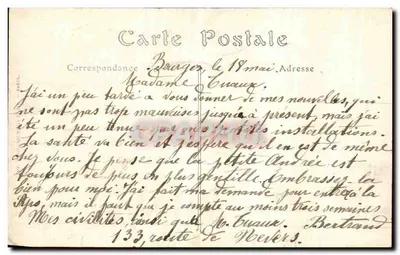 Carte Postale
Correspondance Bourges, le 18 mai Adresse
Madame Tuaux.
J'ai un peu tardé a vous donner de mes nouvelles, qui
ne sont pas trop mauvaises jusqu'à présent, mais j'ai
été un peu par mes installations.
La santé va bien et j'espère qu'il en est de même
chez vous. Je pense que la ptite Andrée est
toujours de plus en plus gentille. Embrassez la
bien pour moi. J'ai fait ma demande pour entrer à la
mais il faut que je compte au moins trois semaines
Mes civilités, ainsi qu'à M. Tuaux. Bertrand
133, route de Nevers.